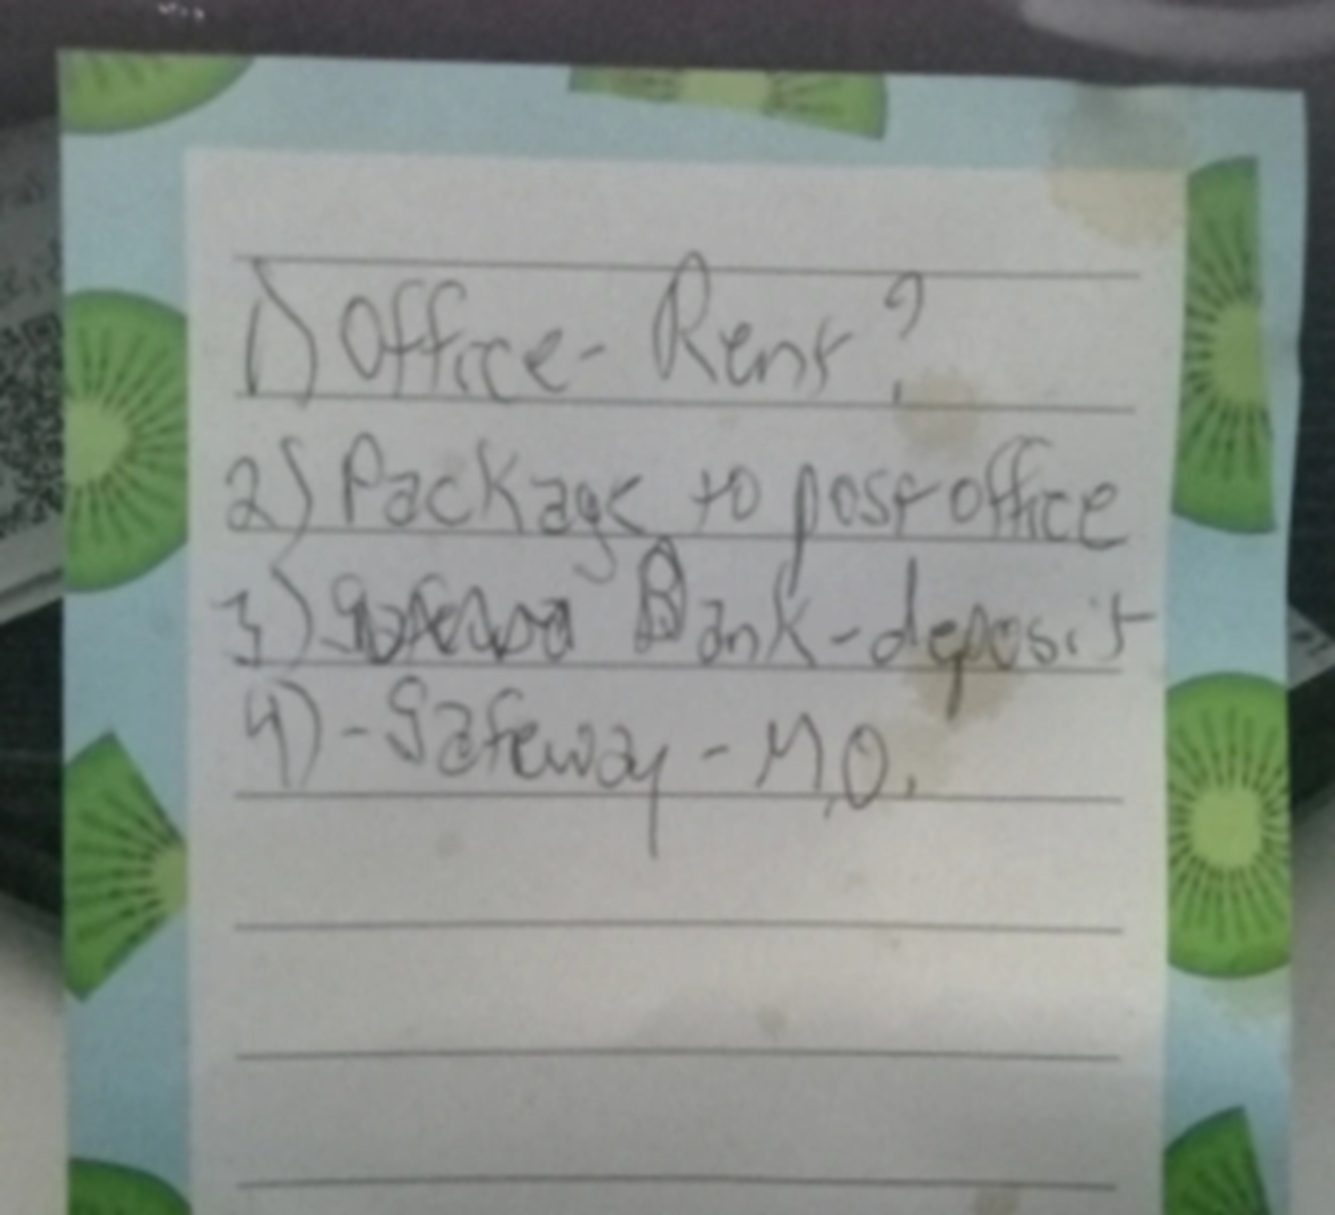 1) Office - Rent?
2) Package to post office
3) Bank - deposit
4) - Safeway - M.O.